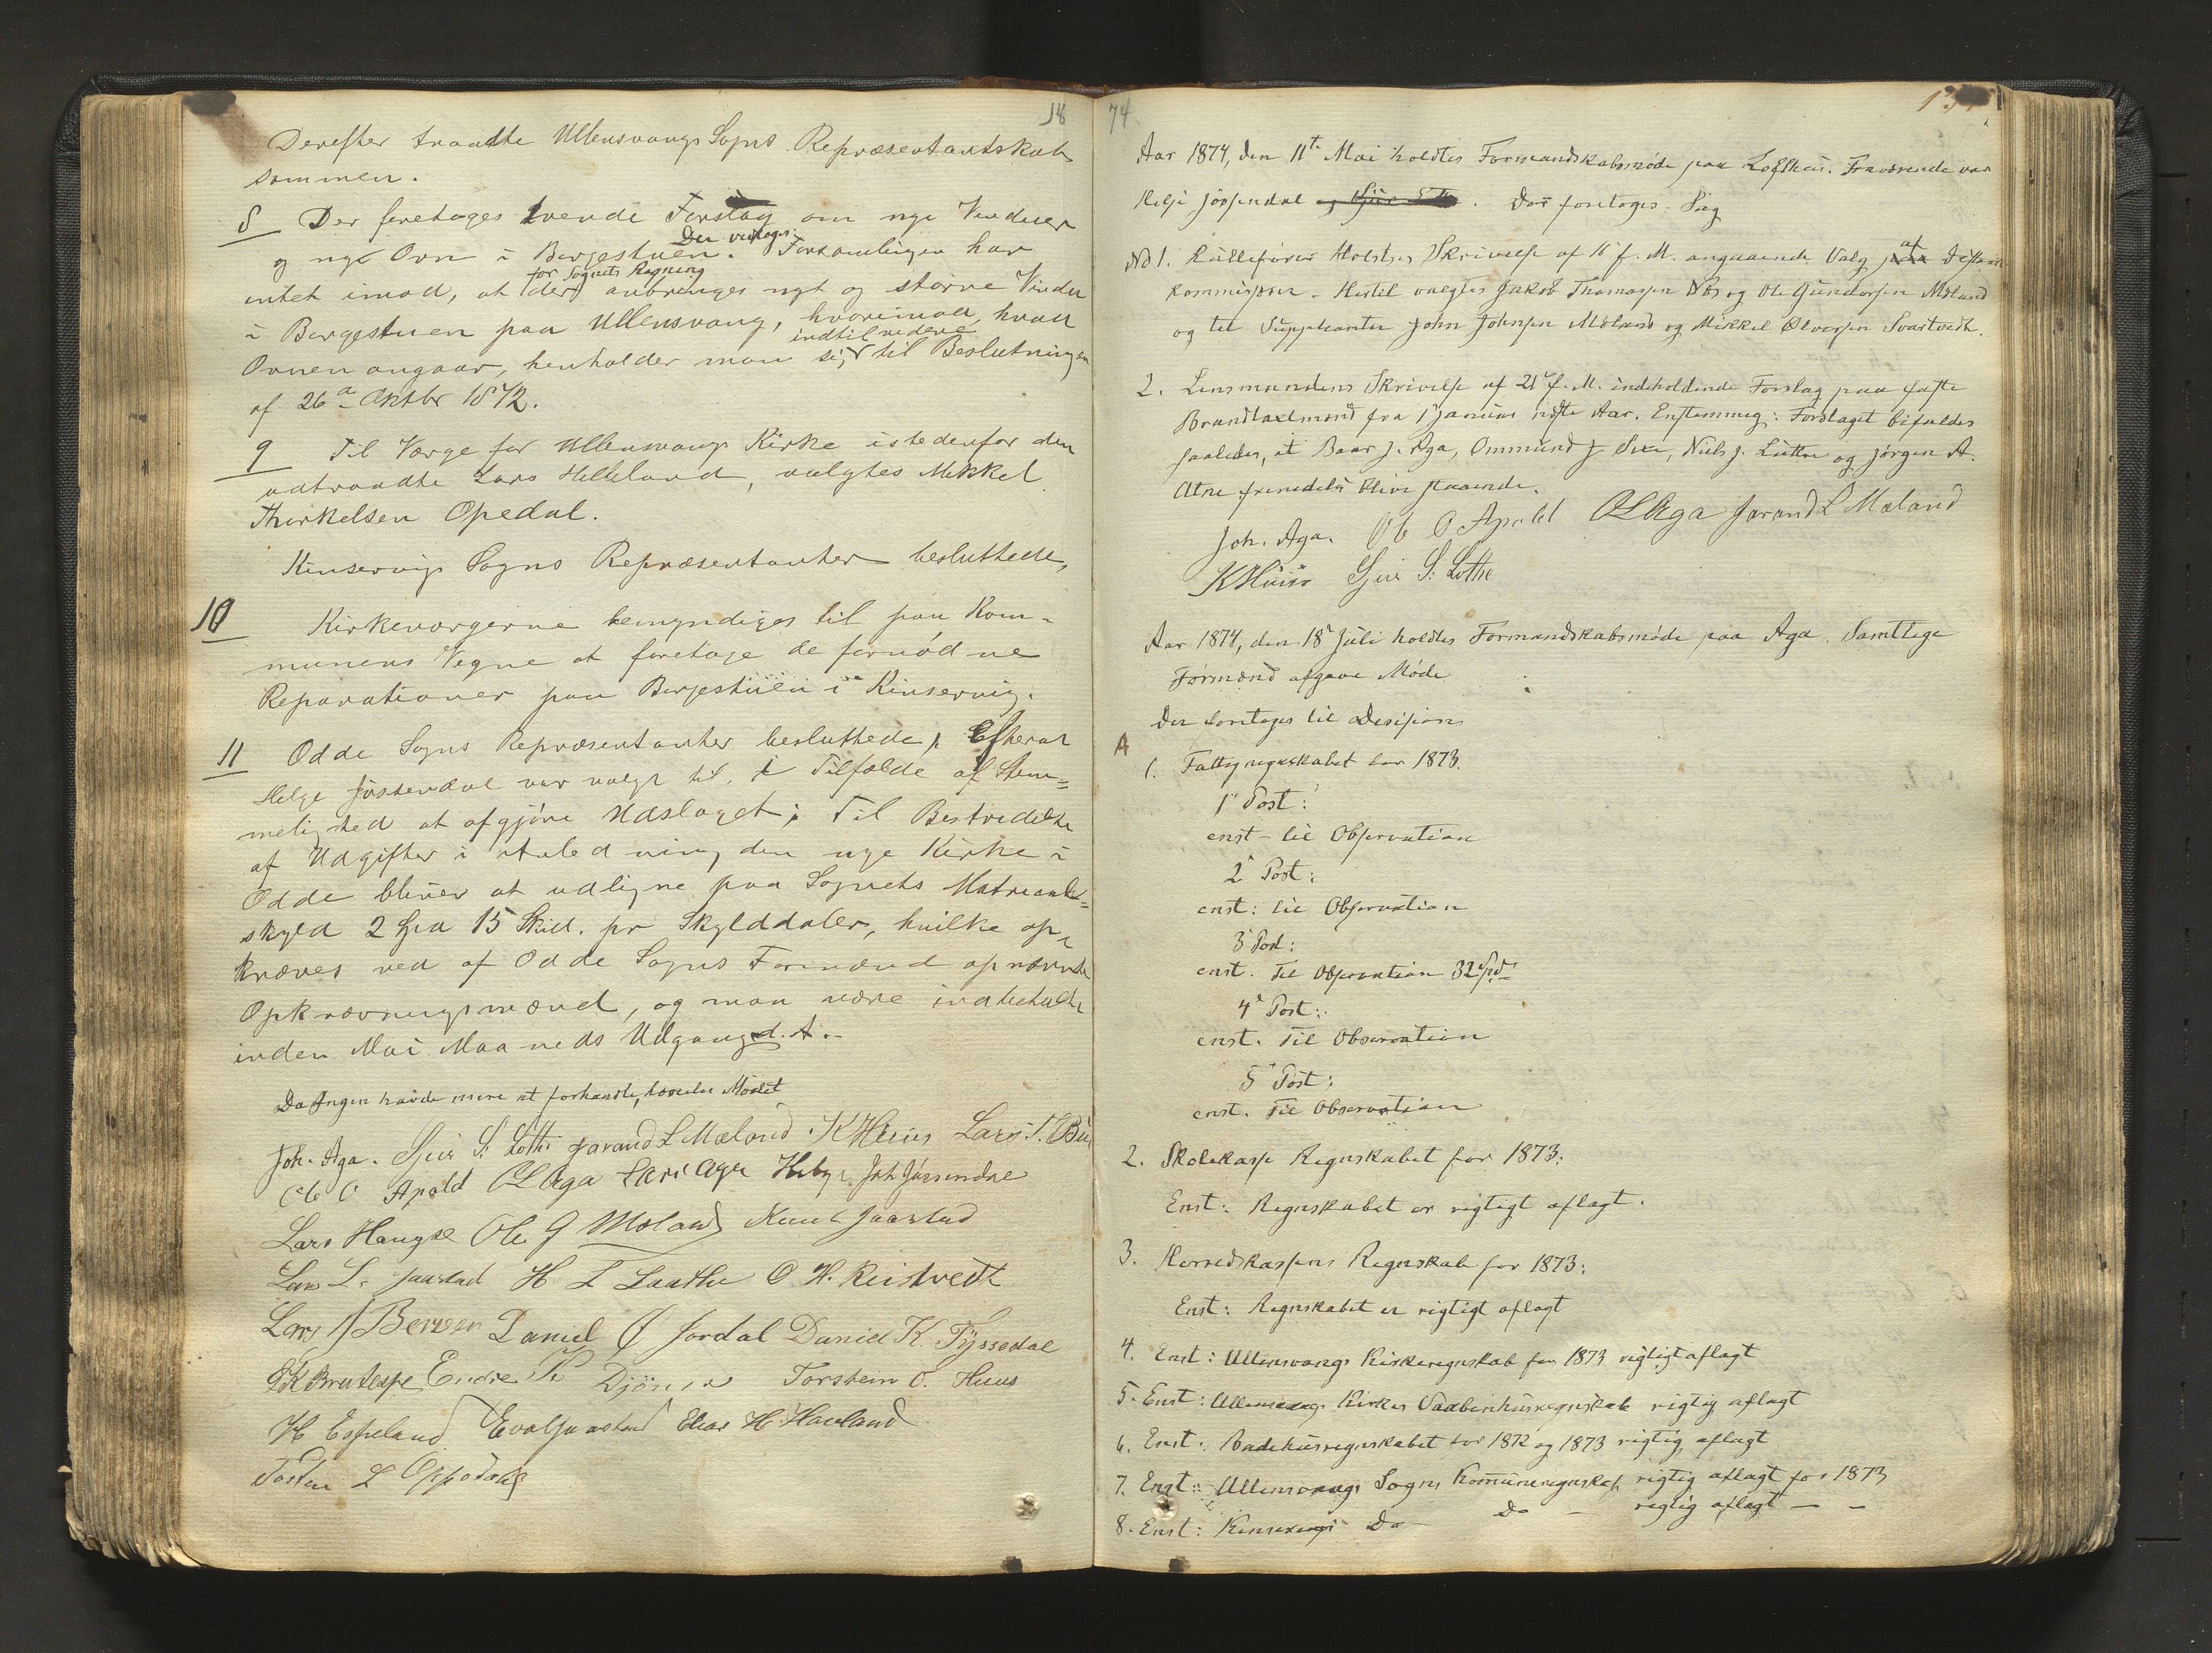 18
Derefter traadte Ullensvangs Sogns Repræsentantskab
sammen.
8 Der foretages tvende Forslag om nye Vinduer
og nye Ovn i Borgestuen. Der vedtoges: Forsamlingen har
intet imod, at der for Sognets Regning anbringes nyt og større Vindu
i Borgestuen paa Ullensvang, hvorimod, hvad
Ovnen angaar, henholder man sig indtil videre til Beslutningen
af 26de Oktbr 1872.
9 Til Værge for Ullensvangs Kirke istedenfor den
udtraadte Lars Helleland, valgtes Mikkel
Thorkelsen Opedal.
Kinservigs Sogns Repræsentanter besluttede,
10 Kirkeværgerne bemyndiges til paa Kom-
munens Vegne at foretage de fornødne
Reparationer paa Borgestuen i Kinservig.
11 Odde Sogns Repræsentanter besluttede, efterat
Helge Jøssendal var valgt til, i Tilfælde af Stem-
melighed at afgjøre Udslaget: Til Bestridelse
af Udgifter i Anledning den nye Kirke i
Odde bliver at udligne paa Sognets Matricul-
skyld 2 Spd 15 Skill. pr Skylddaler, hvilke op-
kræves ved af Odde Sogns Formænd opnævnte
Opkrævningsmænd, og maa være indbetalte
inden Mai Maaneds Udgang d. A.
Da Ingen havde mere at forhandle, hævedes Mødet
Joh. Aga. Sjur S. Lothe Jarand L Mæland. K Huus Lars T. Bu
Ole O Apold O L Aga Lars Aga Helge Joh Jøssendal
Lars Hauge Ole G Mæland Knut Jaastad
Lars L. Jaastad H L Laathe O H. Reistvedt
Lars J Berven Daniel O Jordal Daniel K. Tyssedal
Endre Djønne Torstein O. Huus
H Espeland Jaastad Elias H Hauland
Tosten L Oppedal
74
Aar 1874, den 11te Mai holdtes Formandskabsmøde paa Lofthus. Fraværende var
Helje Jøssendal. Der foretoges Sag
No 1. Rullefører Holsts Skrivelse af 16 f. M. angaaende Valg af
kommissær. Hertil valgtes Jakob Thomassen Næs og Ole Gundersen Mæland
og til Suppleanter John Johnsen Mæland og Mikkel Olversen Svartvedt.
2. Lensmandens Skrivelse af 21de f. M. indeholdende Forslag paa faste
Brandtaxtmænd fra 1 Januar næste Aar. Enstemmig: Forslaget bifaldes
saaledes, at Baar J. Aga, Ommund J Sexe, Niels J. Lutro og Jørgen A.
Utne fremdeles blive staaende.
Joh. Aga. Ole O Apold O L Aga Jarand L Mæland
K Huus Sjur S. Lothe
Aar 1874, den 18de Juli holdtes Formandskabsmøde paa Aga. Samtlige
Formænd afgave Møde
Der foretages til Desision
A
1. Fattigregnskabet for 1873.
1e Post:
enst. til Observation
2e Post:
enst: til Observation
3e Post:
enst. Til Observation 32 Spd
4e Post:
enst. Til Observation
5e Post:
enst. Til Observation
2. Skolekasse Regnskabet for 1873:
Enst: Regnskabet er rigtigt aflagt.
3. Herredskassens Regnskab for 1873:
Enst: Regnskabet er rigtigt aflagt
4. Enst: Ullensvangs Kirkeregnskab for 1873 rigtigt aflagt
5. Enst: Ullensvangs Kirkes rigtig aflagt
6. Enst: Badehusregnskabet for 1872 og 1873 rigtig aflagt
7. Enst: Ullensvangs Sogns Kommuneregnskab rigtig aflagt for 1873
8. Enst: Kinservigs Do - Do - rigtig aflagt — —